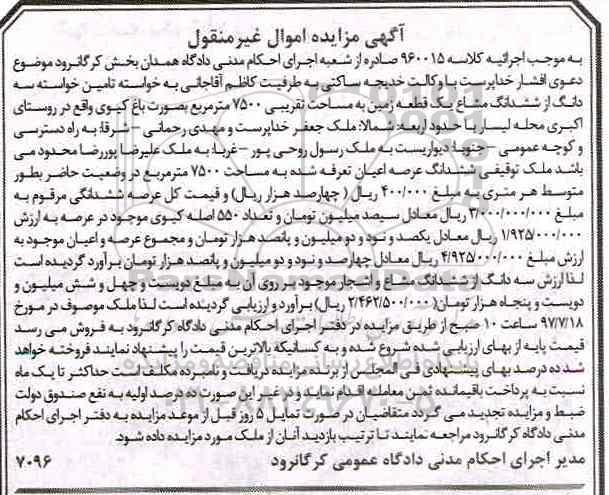 آگهی مزایده اموال غیرمنقول
به موجب اجرائیه کلاسه ۹۶۰۰۱۵ صادره از شعبه اجرای احکام مدنی دادگاه همدان بخش کرگانرود موضوع
دعوی افشار خداپرست با وکالت خدیجه ساکتی به طرفیت کاظم آقاجانی به خواسته تامین خواسته سه
دانگ از ششدانگ مشاع یک قطعه زمین به مساحت تقریبی ۷۵۰۰ مترمربع بصورت باغ کیوی واقع در روستای
اکبری محله لیسار با حدود اربعه: شمالا: ملک جعفر خداپرست و مهدی رحمانی – شرقا: به راه دسترسی
و کوچه عمومی – جنوبا: دیواریست به ملک رسول روحی پور – غربا: به ملک علیرضا پوررضا محدود می
باشد ملک توقیفی ششدانگ عرصه اعیان تعرفه شده به مساحت ۷۵۰۰ مترمربع در وضعیت حاضر بطور
متوسط هر متری به مبلغ ۴۰۰/۰۰۰ ریال ( چهارصد هزار ریال) و قیمت کل عرصه ششدانگی مرقوم به
مبلغ ۳/۰۰۰/۰۰۰/۰۰۰ ریال معادل سیصد میلیون تومان و تعداد ۵۵۰ اصله کیوی موجود در عرصه به ارزش
۱/۹۲۵/۰۰۰/۰۰۰ ریال معادل یکصد و نود و دو میلیون و پانصد هزار تومان و مجموع عرصه و اعیان موجود به
ارزش مبلغ ۴/۹۲۵/۰۰۰/۰۰۰ ریال معادل چهارصد و نود و دو میلیون و پانصد هزار تومان برآورد گردیده است
لذا ارزش سه دانگ از ششدانگ مشاع و اشجار موجود بر روی آن به مبلغ دویست و چهل و شش میلیون و
دویست و پنجاه هزار تومان( ۲/۴۶۲/۵۰۰/۰۰۰ ریال) برآورد و ارزیابی گردیده است لذا ملک موصوف در مورخ
۹۷/۷/۱۸ ساعت ۱۰ صبح از طریق مزایده در دفتر اجرای احکام مدنی دادگاه کرگانرود به فروش می رسد
قیمت پایه از بهای ارزیابی شده شروع شده و به کسانیکه بالاترین قیمت را پیشنهاد نمایند فروخته خواهد
شد ده درصد بهای پیشنهادی فی المجلس از برنده مزایده دریافت و نامبرده مکلف است حداکثر تا یک ماه
نسبت به پرداخت باقیمانده ثمن معامله اقدام نماید و در غیر این صورت ده درصد اولیه به نفع صندوق دولت
ضبط و مزایده تجدید می گردد متقاضیان در صورت تمایل ۵ روز قبل از موعد مزایده به دفتر اجرای احکام
مدنی دادگاه کرگانرود مراجعه نمایند تا ترتیب بازدید آنان از ملک مورد مزایده داده شود.
مدیر اجرای احکام مدنی دادگاه عمومی کرگانرود ۷۰۹۶